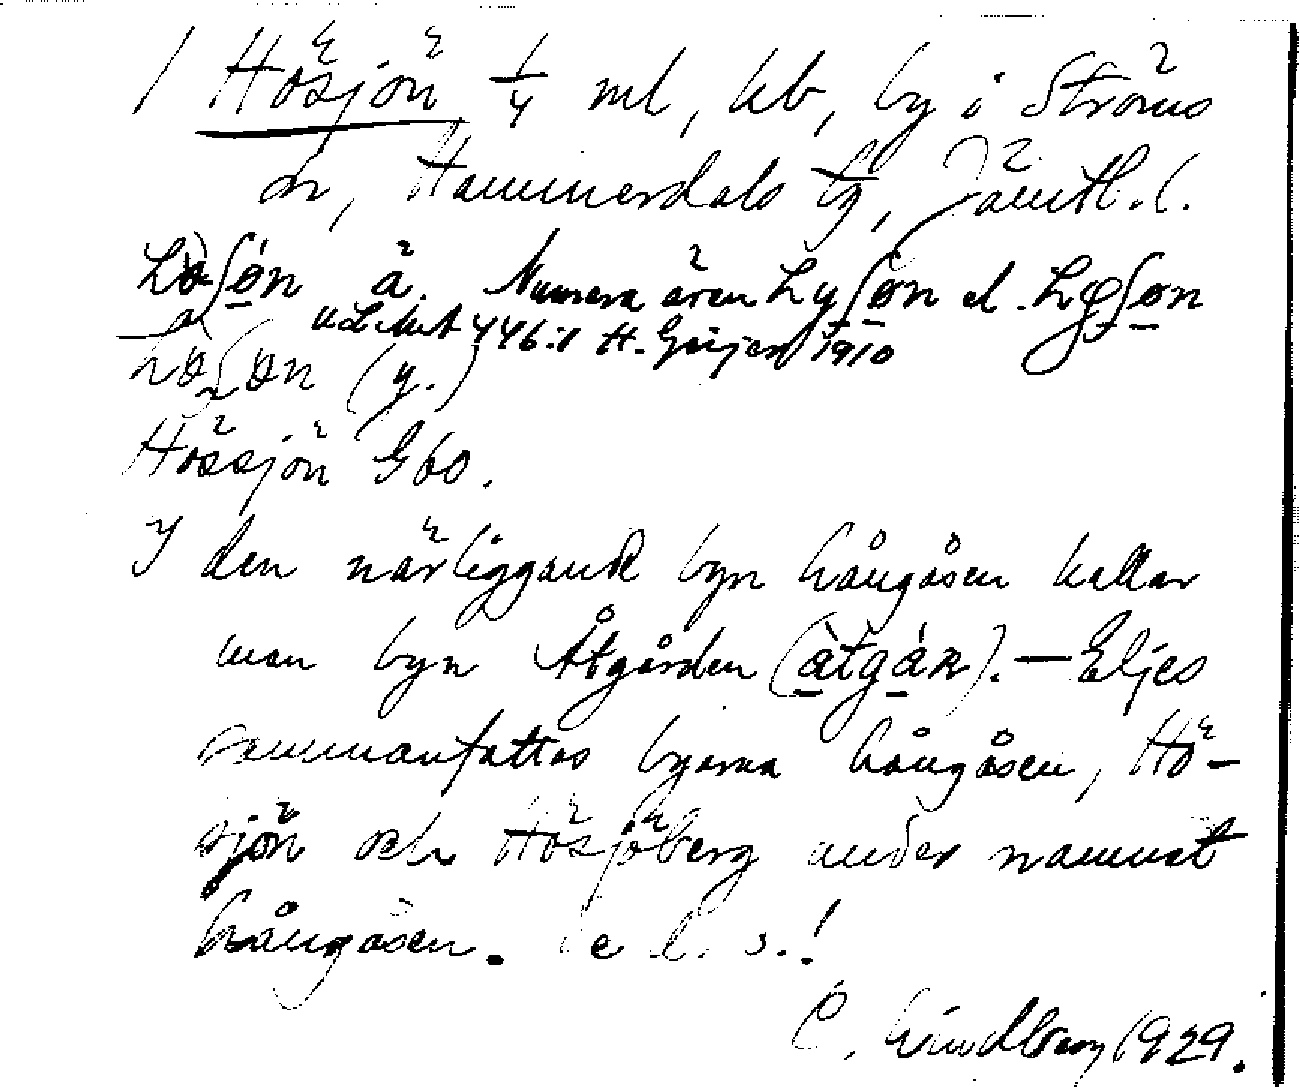 1 Hösjön 1/4 ml, kb, by i Ströms
sn, Hammerdals tg, Jämtl. l.
å. Numera även el.
ULMA 446:1 H. Geijer 1910
(y.)
Hössjön Gbo.
I den närliggande byn Långåsen kallar
man byn Åtgården (àtgán). — Eljes
sammanfattas byarna Långåsen, Hö-
sjön och Hösjöberg under namnet
Långåsen. Se d. s.!
C. Lindberg 1929.